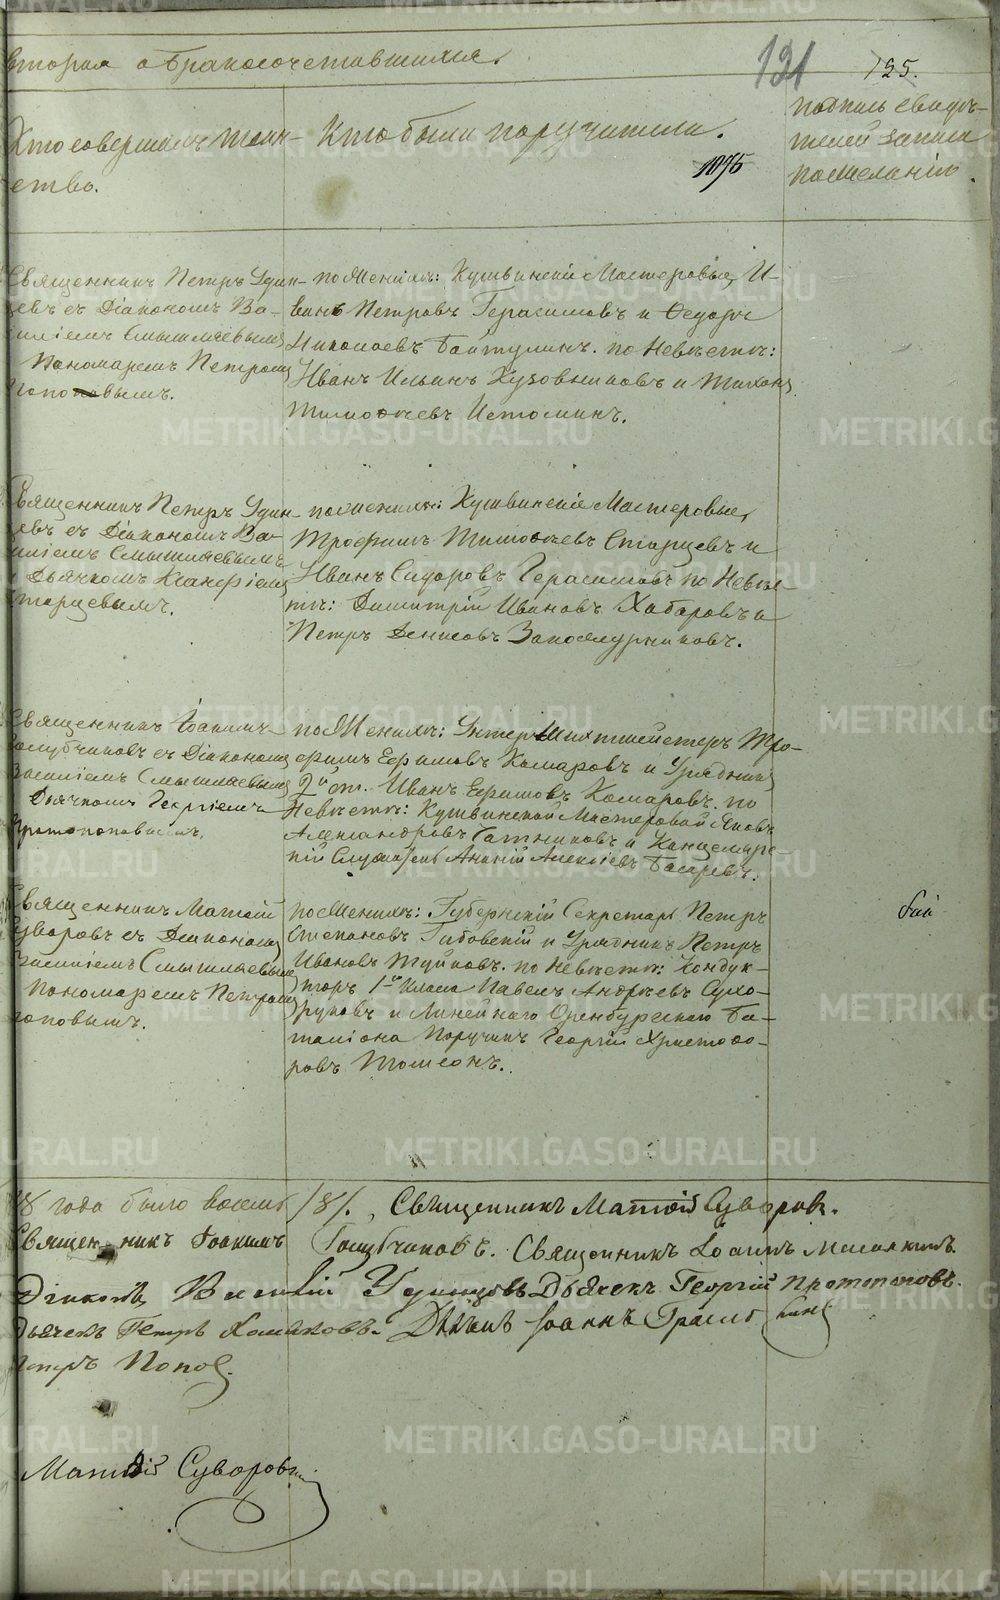 вторая о бракосочетавшихся.
131 125.
Кто совершалъ таин-
ство.
Кто были поручители.
1075
подпись свидѣ-
телей записи
по желанію.
Священникъ Петръ Удин-
цевъ съ Діакономъ Ва-
силіемъ Смышляевымъ
Пономаремъ Петромъ
Поповымъ.
по Женихѣ: Кушвинскіе Мастеровые, И-
ванъ Петровъ Герасимовъ и Ѳедоръ
Николаевъ Байтулинъ. по Невѣстѣ:
Иванъ Ильинъ Кузовниковъ и Тихонъ
Тимоѳѣевъ Истоминъ.
Священникъ Петръ Удин-
цевъ съ Діакономъ Ва-
силіемъ Смышляевымъ
Дьячкомъ Ксанфіемъ
Старцевымъ.
по женихѣ: Кушвинскіе Мастеровые,
Трофимъ Тимоѳѣевъ Старцевъ и
Иванъ Сидоровъ Герасимовъ по Невѣс-
тѣ: Димитрій Ивановъ Хабаровъ и
Петръ Денисовъ Закожурниковъ.
Священникъ Іоакимъ
Голубчиковъ съ Діакономъ
Василіемъ Смышляевымъ
Дьячкомъ Георгіемъ
Протопоповымъ.
по Женихѣ: Унтеръ Шихтмейстеръ Тро-
фимъ Ефимовъ Комаровъ и Урядникъ
2й ст. Иванъ Ефимовъ Комаровъ. по
Невѣстѣ: Кушвинской Мастеровой Яковъ
Александровъ и Канцеляр-
скій Служитель Ананій Алексіевъ Басаревъ.
Священникъ Матѳій
Суворовъ съ Діакономъ
Василіемъ Смышляевымъ
Пономаремъ Петромъ
Поповымъ.
по Женихѣ: Губернскій Секретарь Петръ
Степановъ и Урядникъ Петръ
Ивановъ Туйковъ. по Невѣстѣ: Кондук-
торъ 1го класса Павелъ Андрѣевъ Сухо-
руковъ и Линейнаго Оренбургскаго Ба-
таліона Поручикъ Георгій Христофо-
ровъ Томсонъ.
года было восемь /8/. Священникъ Матѳій Суворовъ.
Священникъ Іоакимъ Голубчиковъ. Священникъ Іоаннъ
Діаконъ Василій Дьячекъ Георгій Протопоповъ.
Дьячекъ Петръ Хомяковъ. Іоаннъ
Петръ Попов
Матѳій Суворовъ
METRIKI.GASO-URAL.RU